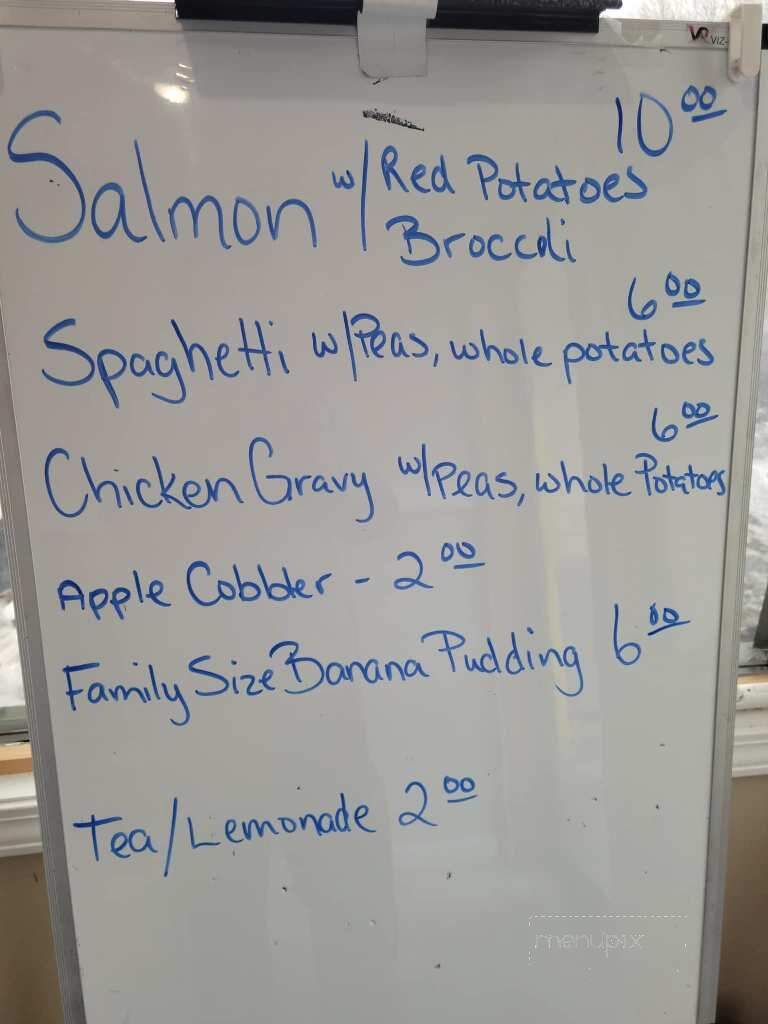 VR VIZ-
10 00
Salmon w/ Red Potatoes
Broccoli
6 00
Spaghetti w/Peas, whole potatoes
6 00
Chicken Gravy w/Peas, whole Potatoes
Apple Cobbler - 2 00
Family Size Banana Pudding 6 00
Tea/Lemonade 2 00
menupix